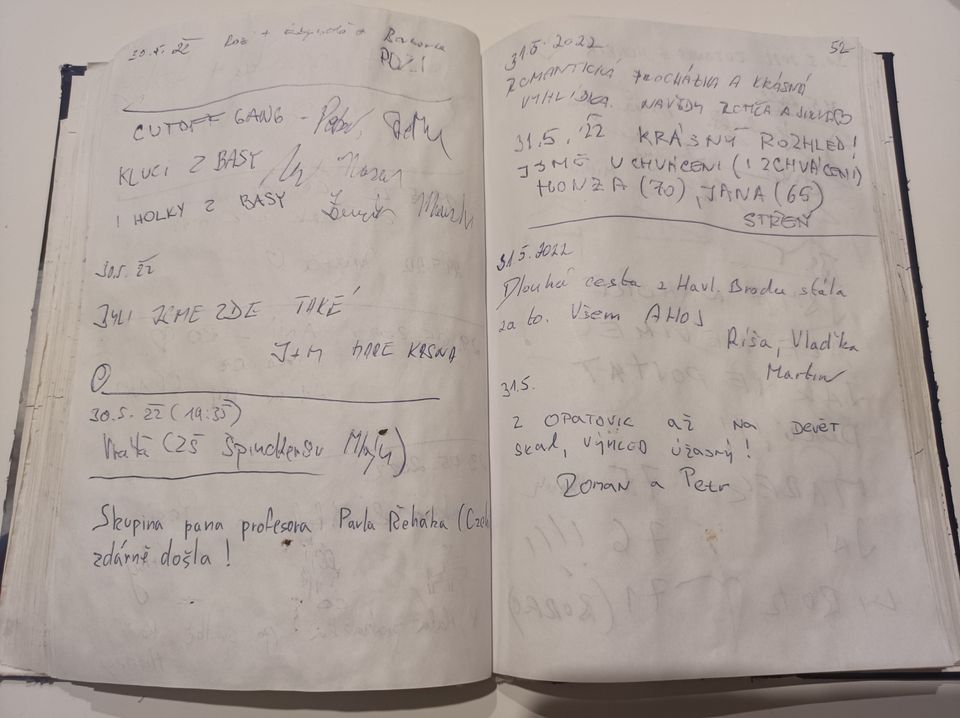 30.5. 22
CUTOFF GANG -
KLUCI Z BASY
I HOLKY Z BASY
30.5. 22
BYLI JSME ZDE TAKÉ
J+M HARE KRSNA
30.5. 22 (19:35)
Vrátá (ZŠ Špindlerův Mlýn)
Skupina pana profesora Pavla Řeháka (Czech
zdárně došla !
52
31.5. 2022
ROMANTICKÁ PROCHÁZKA A KRÁSNÁ
VYHLÍDKA. NAVŽDY
31.5. 22 KRÁSNÝ ROZHLED!
JSME UCHVÁCENI (I ZCHVÁCENI)
HONZA (70), JANA (65)
31.5. 2022
Dlouhá cesta z Havl. Brodu stála
za to. Všem AHOJ
Ríša, Vlaďka
Martin
31.5.
Z OPATOVIC AŽ NA DEVĚT
SKAL, VÝHLED ÚŽASNÝ!
ROMAN a Petr